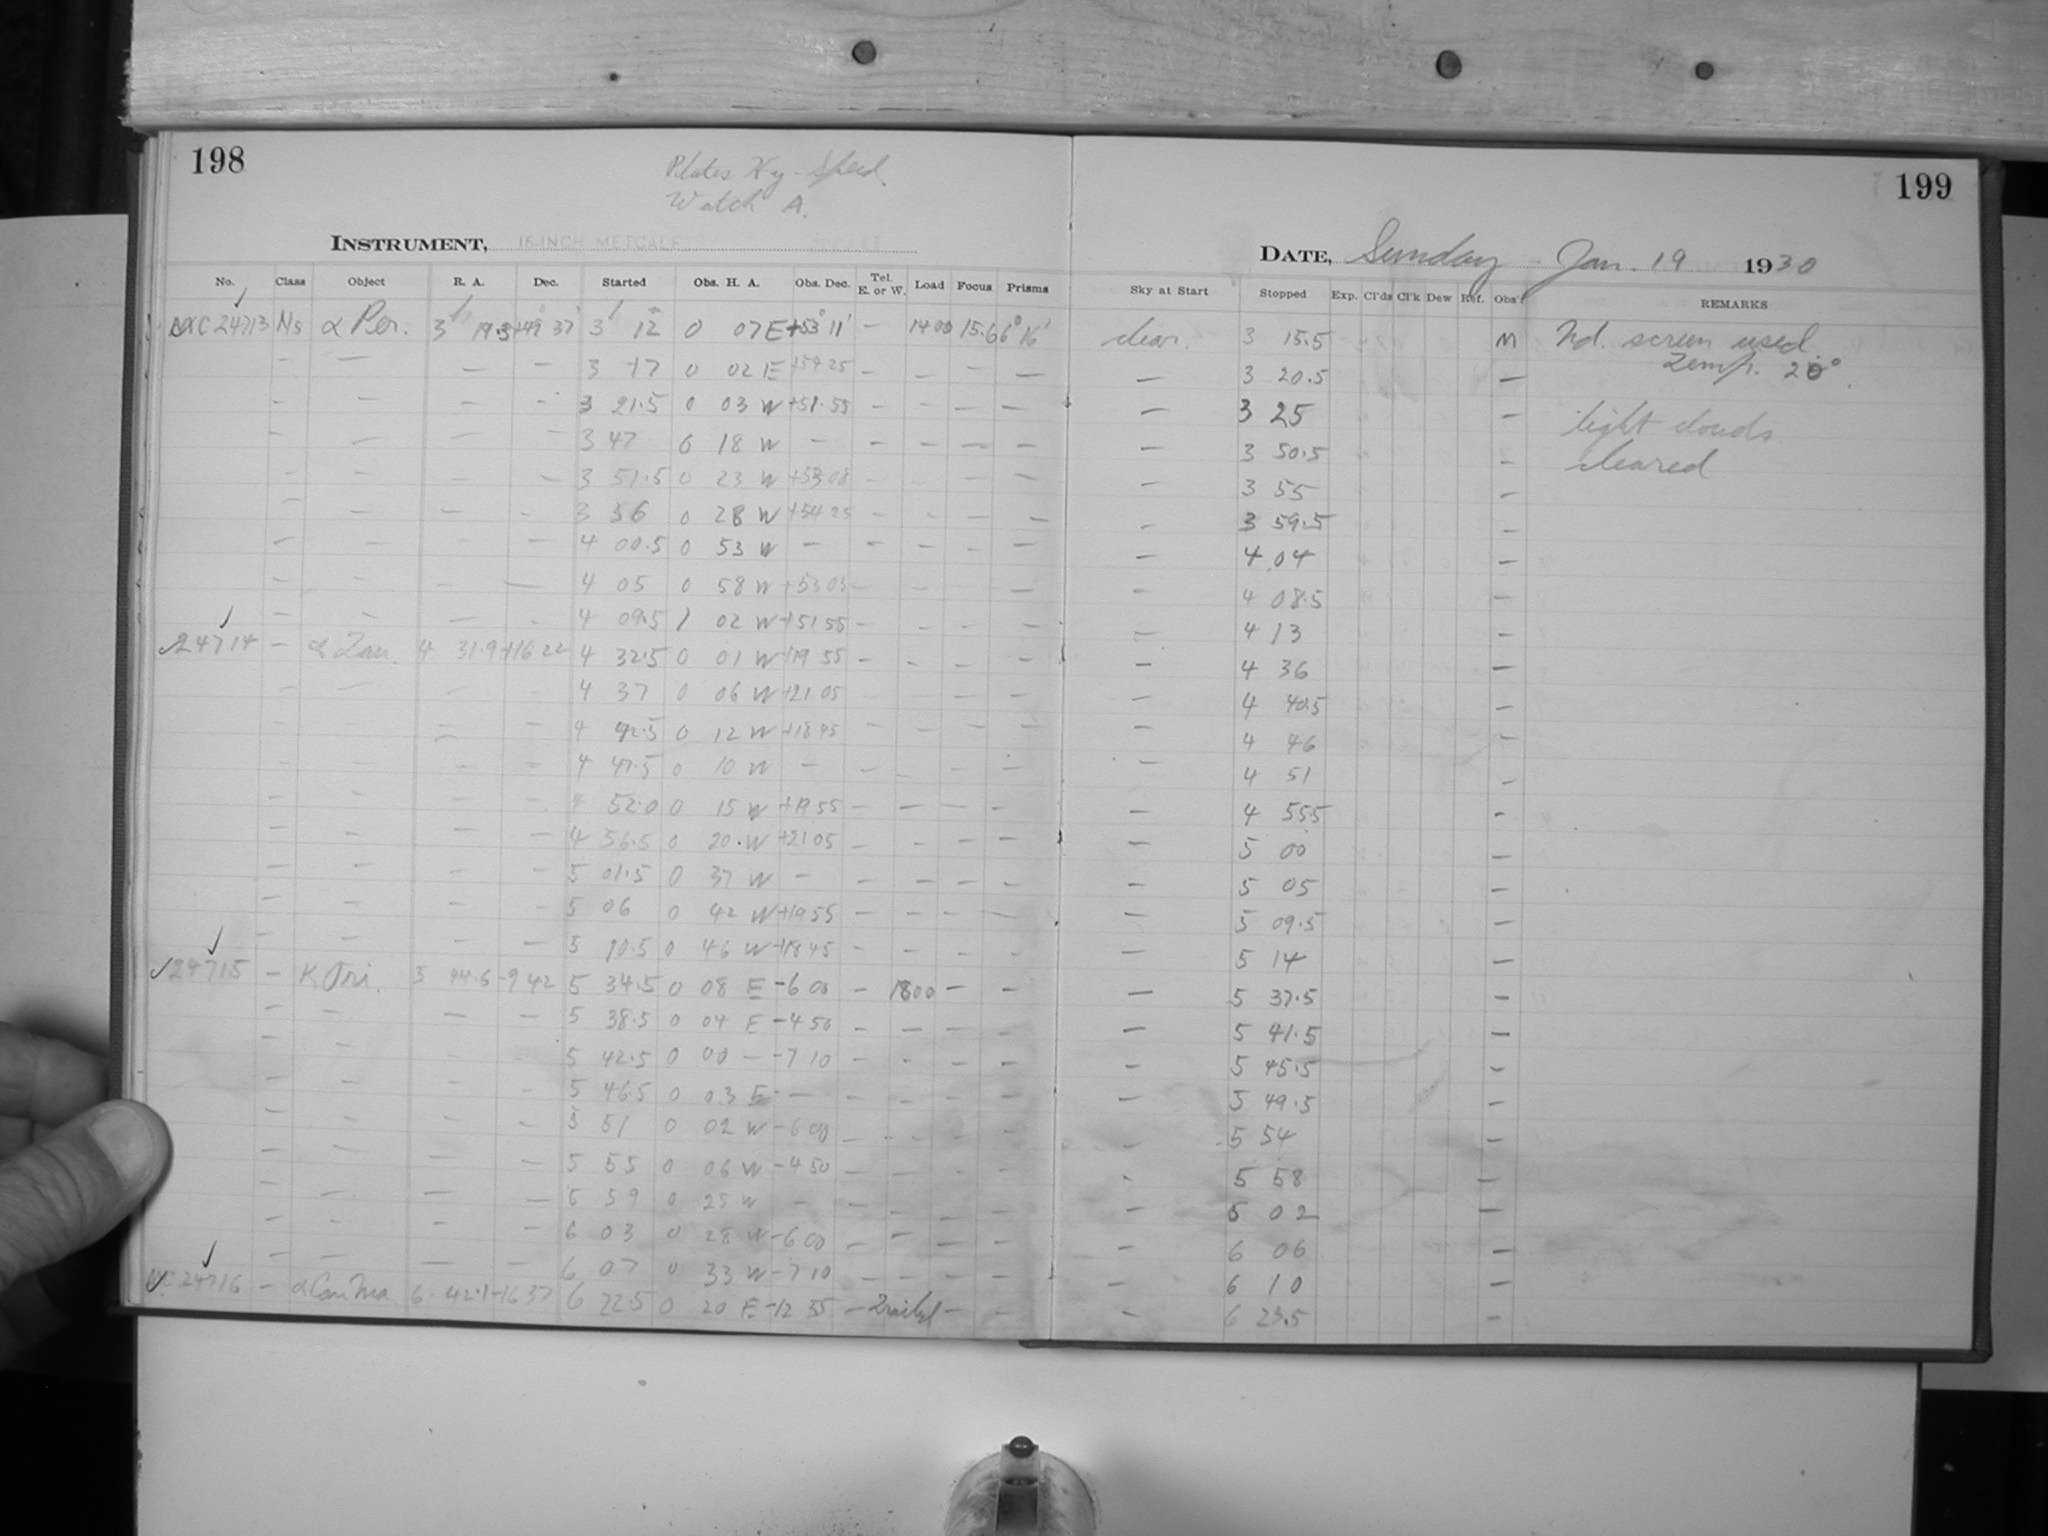 198
Plates Hy-Speed.
Watch A.
INSTRUMENT, 16-INCH METCALF
No. Class Object R. A. Dec. Started Obs. H. A. Obs. Dec. Tel. E. or W. Load Focus Prisms
24713 Ns α Per. 3 19.3 +49° 37' 3 12 0 07 E +53° 11' — 1400 15.6 6° 16'
— — — — 3 17 0 02 E +54 25 — — — —
— — — — 3 21.5 0 03 W +51.55 — — — —
— — — — 3 47 0 18 W — — — — —
— — — — 3 51.5 0 23 W +53 08 — — — —
— — — — 3 56 0 28 W +54 25 — — — —
— — — — 4 00.5 0 53 W — — — — —
— — — — 4 05 0 58 W +53 03 — — — —
— — — — 4 09.5 1 02 W +51 55 — — — —
24714 — α Tau. 4 31.9 +16 22 4 32.5 0 01 W +19 55 — — — —
— — — — 4 37 0 06 W +21 05 — — — —
— — — — 4 42.5 0 12 W +18 45 — — — —
— — — — 4 47.5 0 10 W — — — — —
— — — — 4 52.0 0 15 W +19 55 — — — —
— — — — 4 56.5 0 20 W +21 05 — — — —
— — — — 5 01.5 0 37 W — — — — —
— — — — 5 06 0 42 W +19 55 — — — —
— — — — 5 10.5 0 46 W +18 45 — — — —
24715 — κ Ori. 5 44.6 -9 42 5 34.5 0 08 E -6 00 — 1800 — —
— — — — 5 38.5 0 04 E -4 50 — — — —
— — — — 5 42.5 0 00 — -7 10 — — — —
— — — — 5 46.5 0 03 E — — — — —
— — — — 5 51 0 02 W -6 00 — — — —
— — — — 5 55 0 06 W -4 50 — — — —
— — — — 5 59 0 25 W — — — — —
— — — — 6 03 0 28 W -6 00 — — — —
— — — — 6 07 0 33 W -7 10 — — — —
24716 — α Can Ma. 6 42.1 -16 37 6 22.5 0 20 E -12 35 — Trailed — —
199
DATE, Sunday - Jan. 19 1930
Sky at Start Stopped Exp. Cl'ds Cl'k Dew Ref. Obs'r REMARKS
clear. 3 15.5 M Nd. screen used
Temp. 20°.
— 3 20.5 —
— 3 25 — light clouds.
— 3 50.5 — cleared
— 3 55 —
— 3 59.5 —
— 4 04 —
— 4 08.5 —
— 4 13 —
— 4 36 —
— 4 40.5 —
— 4 46 —
— 4 51 —
— 4 55.5 —
— 5 00 —
— 5 05 —
— 5 09.5 —
— 5 14 —
— 5 37.5 —
— 5 41.5 —
— 5 45.5 —
— 5 49.5 —
— 5 54 —
— 5 58 —
— 5 02 —
— 6 06 —
— 6 10 —
— 6 23.5 —